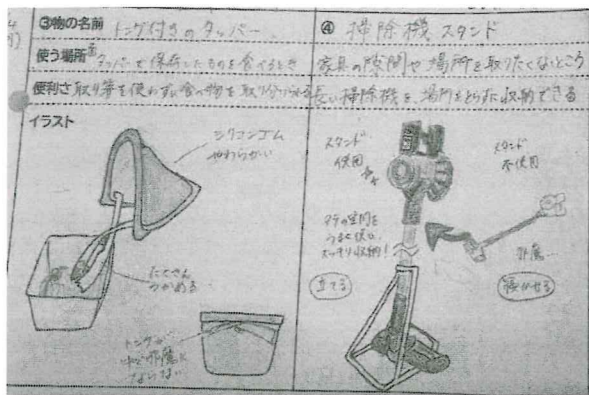 ③物の名前 トング付きのタッパー
使う場所 タッパーで保存したものを食べるとき
便利さ 取り箸を使わずに食べ物を取り分けられる
イラスト
シリコンゴム
やわらかい
たくさん
つかめる
トングが
中で邪魔に
ならない
④ 掃除機スタンド
家具の隙間や場所を取りたくないところ
長い掃除機を、場所をとらずに収納できる
スタンド
使用
スタンド
不使用
タテの空間を
うまく使い、
スッキリ収納！
立てる
邪魔…
寝かせる